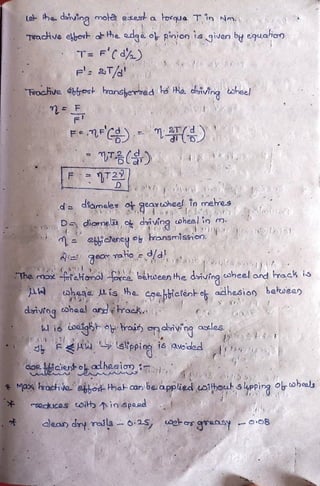 Let the driving motor exert a torque T in Nm.
Tractive effort at the edge of pinion is given by equation
T = F'(d'/2)
F' = 2T/d'
Tractive effort transferred to the driving wheel
η = F/F'
F = ηF'(d/D) = η 2T/d' (d/D)
= ηT 2/D (d/d')
F = ηT 2γ/D
d = diameter of gear wheel in metres
D = diameter of driving wheel in m.
η = efficiency of transmission
= gear ratio = d/d'
The max frictional force between the driving wheel and track is
μW where μ is the coefficient of adhesion between
driving wheel and track.
W is weight of train on driving axles
If F ≤ μW slipping is avoided
coefficient of adhesion :-
* Max tractive effort that can be applied without slipping of wheels
* reduces with ↑ in speed
* clean dry rails - 0.25, wet or greasy - 0.08